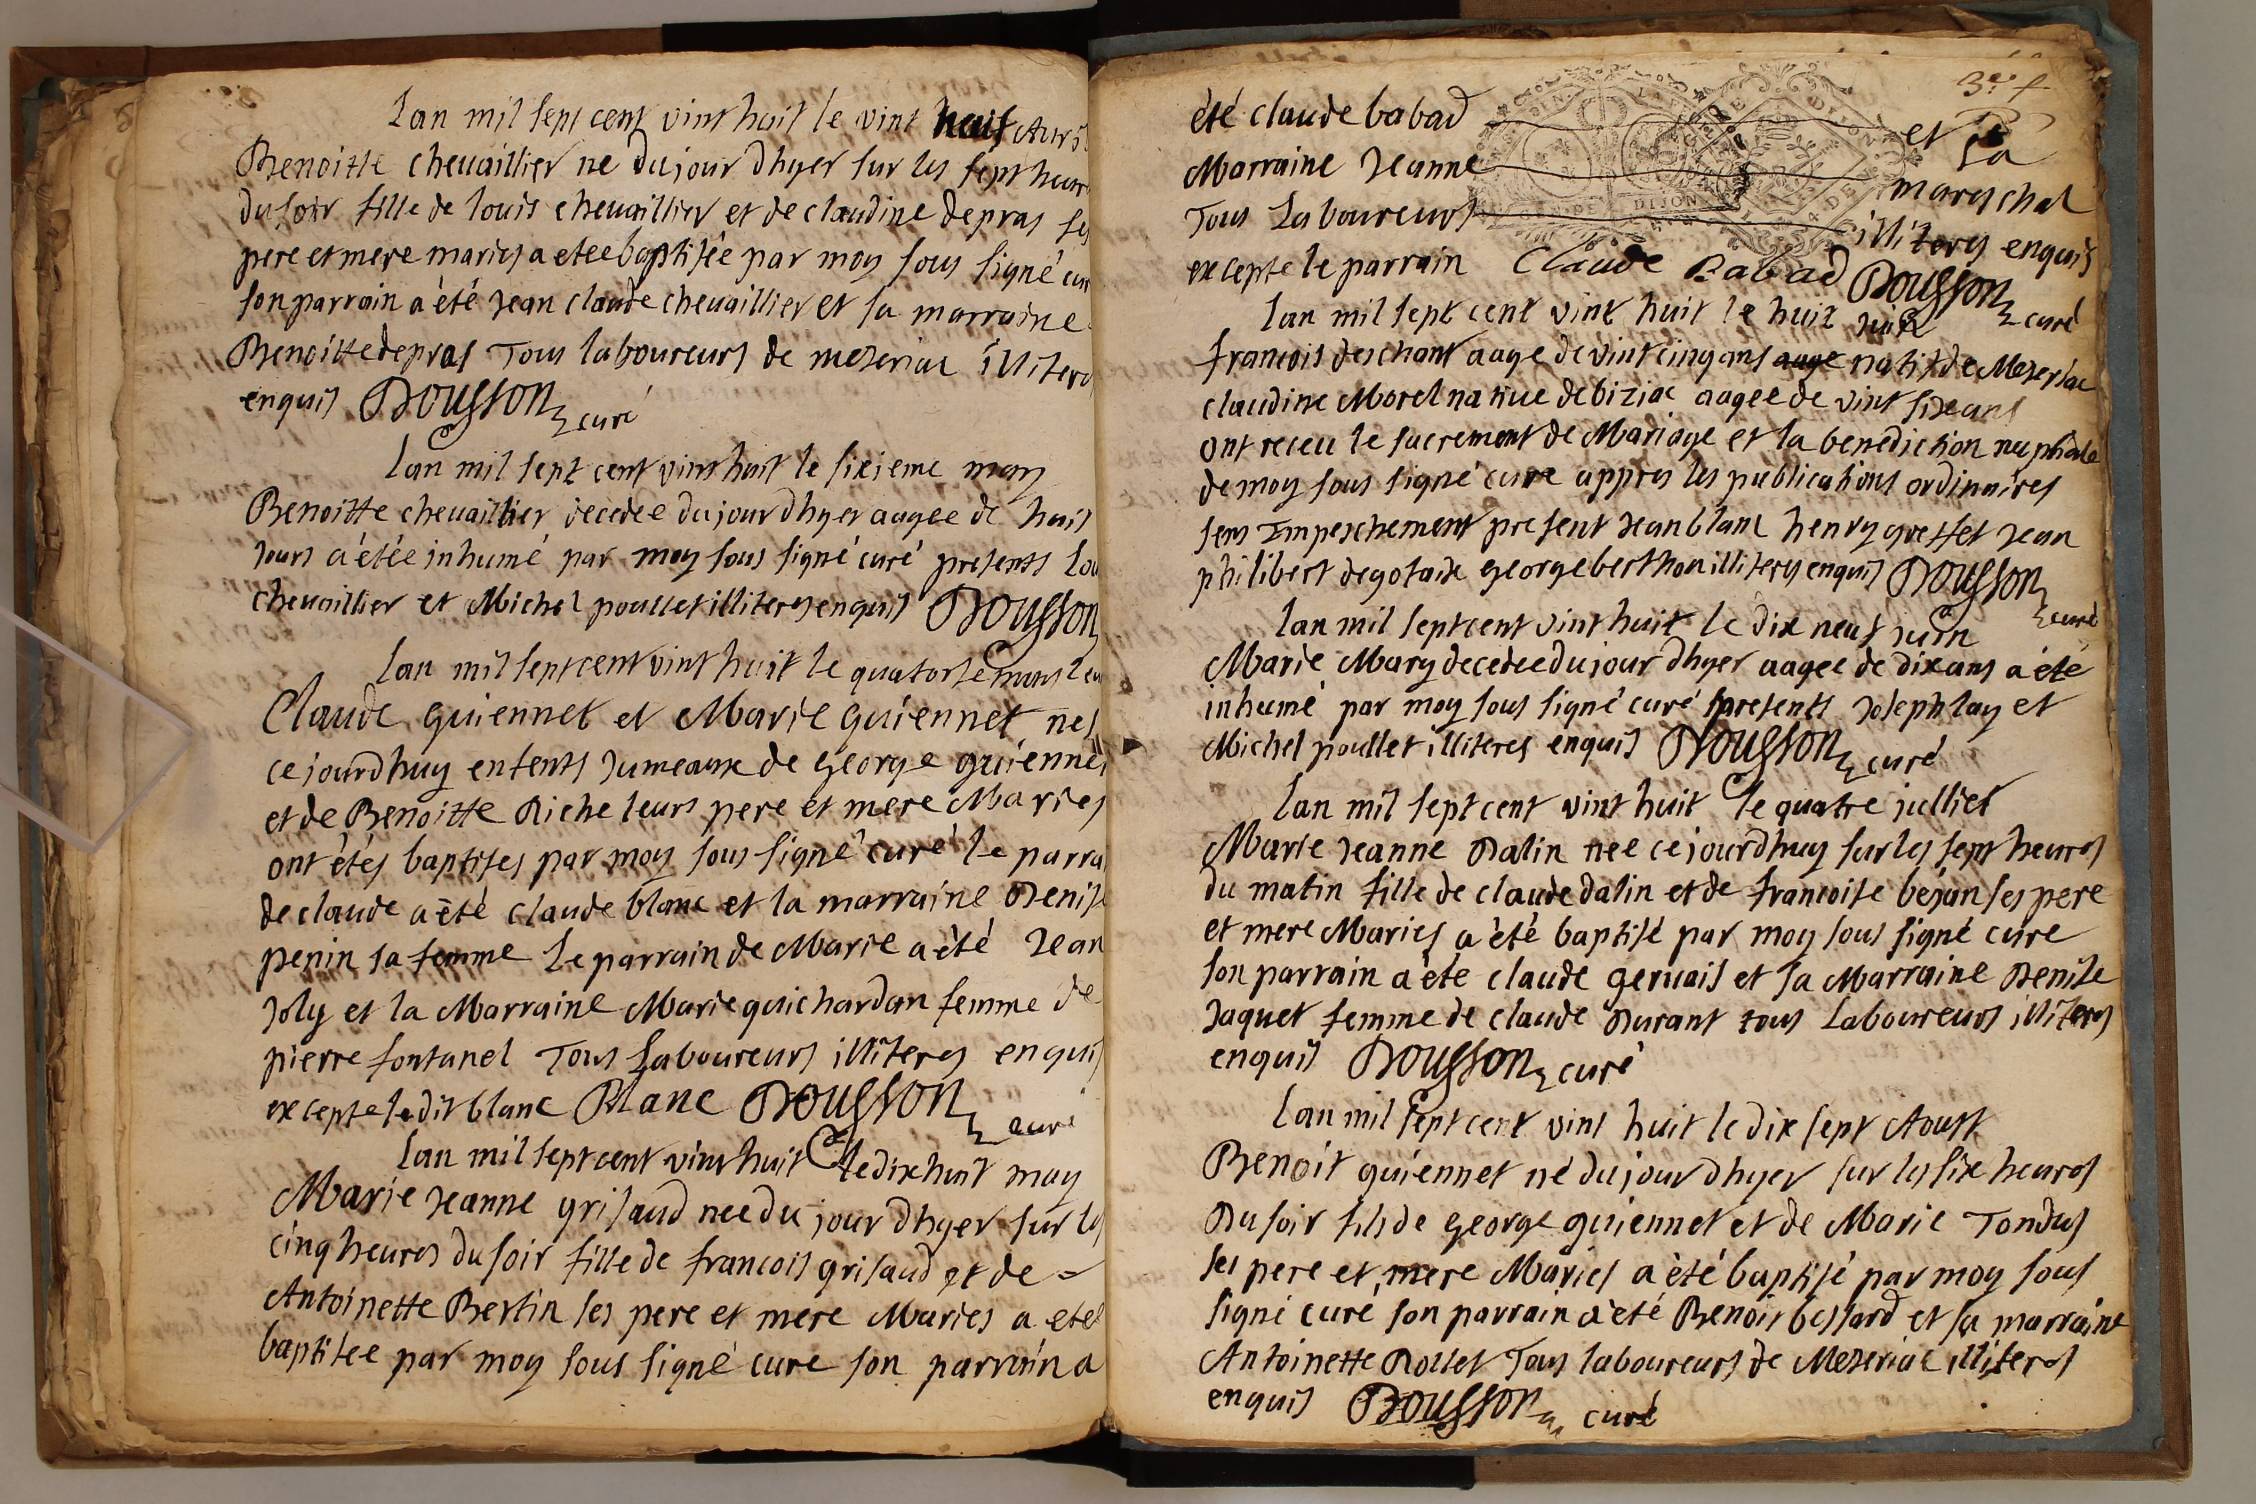 Lan mil sept cent vint huit le vint huit Avri
Benoitte chevaillier ne du jour dhyer sur les sept heur
du soir fille de louis chevaillier et de claudine depras ses
pere et mere maries a etee baptisée par moy sous signé cur
son parrain a été Jean claude chevaillier et sa marraine
Benoitte depras Tous laboureurs de mezeriac illiters
enquis Dousson curé
Lan mil sept cent vint huit le sixieme may
Benoitte chevaillier decedee du jour dhyer aagee de huit
Jours a étée inhumé par moy sous signé curé presents Lou
chevaillier et Michel poullet illiteres enquis Dousson
Lan mil sept cent vint huit le quatorse
Claude guiennet et Marie guiennet nes
ce jourdhuy enfents Jumeaux de george guiennet
et de Benoitte Riche leurs pere et mere Maries
ont étés baptises par moy sous signé curé le parra
de claude a été claude blanc et la marraine Denise
penin sa femme Le parrain de Marie a été Jean
Joly et la Marraine Marie guichardan femme de
pierre fontanel Tous Laboureurs illiteres enquis
excepte le dit blanc Blanc Dousson curé
Lan mil sept cent vint huit le dix huit may
Marie Jeanne grisaud nee du jour dhyer sur les
cinq heures du soir fille de francois grisaud et de
Antoinette Bertin ses pere et mere Maries a eteé
baptisee par moy sous signé cure son parrain a
3e f
été claude babad et sa
Marraine Jeanne mareschal
Tous Laboureurs illiteres enquis
excepte le parrain Claude Babad Dousson curé
Lan mil sept cent vint huit le huit Juin
francois deschant aage de vint cinq ans aage natif de Mezeriac
claudine Morel native de biziac aagee de vint sixe ans
ont receu le sacrement de Mariage et la benediction nuptiale
de moy sous signé cure appres les publications ordinaires
sens Impeschement present Jean blanc henry greffet Jean
philibert degotaix george berthon illiteres enquis Dousson curé
Lan mil sept cent vint huit le dix neuf juin
Marie Mary decedee du jour dhyer aagee de dix ans a été
inhumé par moy sous signé curé presents Joseph lay et
Michel poullet illiteres enquis Dousson curé
Lan mil sept cent vint huit le quatre julliet
Marie Jeanne Dalin nee ce jourdhuy sur les sept heures
du matin fille de claude dalin et de francoise bejan ses pere
et mere Maries a été baptisé par moy sous signé cure
son parrain a été claude gervais et sa Marraine Denise
Jaquet femme de claude Durant tous Laboureurs illiteres
enquis Dousson curé
Lan mil sept cent vint huit le dix sept Aoust
Benoit guiennet né du jour dhyer sur les sixe heures
Du soir fils de george guiennet et de Marie Tondus
ses pere et mere Maries a été baptisé par moy sous
signé curé son parrain a été Benoit bessard et sa marraine
Antoinette Rollet Tous laboureurs de Mezeriac illiteres
enquis Dousson curé